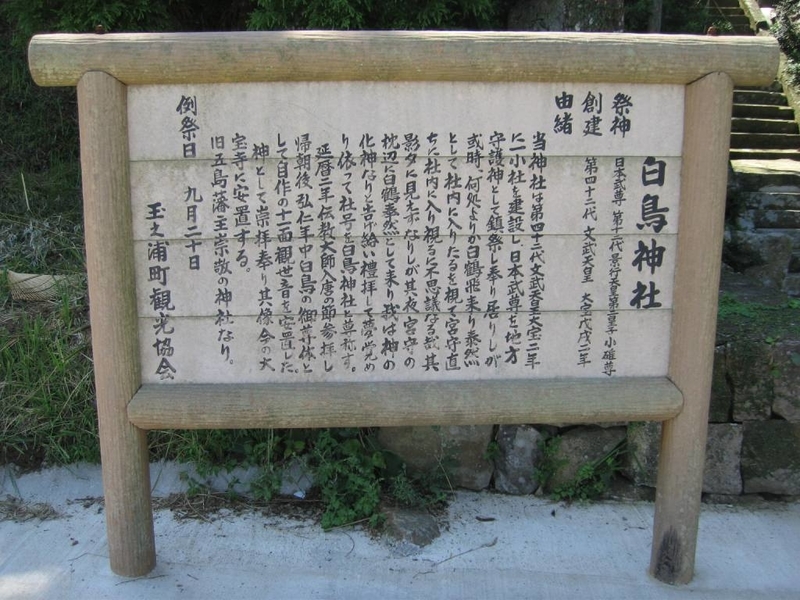 白鳥神社
祭神 日本武尊 第十二代 景行天皇第二皇子 小碓尊
創建 第四十二代 文武天皇 大宝戊戌二年
由緒
当神社は第四十二代文武天皇大宝二年
に一小社を建設し、日本武尊を地方
守護神として鎮祭し奉り居りしが
或時、何処よりか白鶴飛来り泰然
として社内に入りたるを視て宮守直
ちに社内に入り視るに不思議なる哉其
影々に見えずなりしが其夜宮守の
枕辺に白鶴泰然として来り我は神の
化神なりと告げ給い禮拝して夢覚め
り依って社号を白鳥神社と尊称す。
延暦二年伝教大師入唐の節参拝し
帰朝後、弘仁年中白鳥の御尊体と
して自作の十一面観世音を安置した。
神として崇拝奉り其像今の大
宝寺に安置する。
旧五島藩主崇敬の神社なり。
例祭日 九月二十日
玉之浦町観光協会